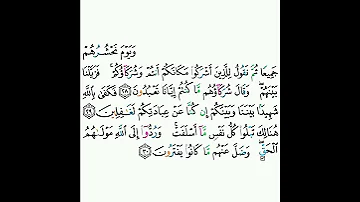 وَيَوْمَ نَحْشُرُهُمْ
جَمِيعًا ثُمَّ نَقُولُ لِلَّذِينَ أَشْرَكُوا۟ مَكَانَكُمْ أَنتُمْ وَشُرَكَآؤُكُمْ ۚ فَزَيَّلْنَا
بَيْنَهُمْ ۖ وَقَالَ شُرَكَآؤُهُم مَّا كُنتُمْ إِيَّانَا تَعْبُدُونَ ﴿٢٨﴾ فَكَفَىٰ بِٱللَّهِ
شَهِيدًۢا بَيْنَنَا وَبَيْنَكُمْ إِن كُنَّا عَنْ عِبَادَتِكُمْ لَغَـٰفِلِينَ ﴿٢٩﴾
هُنَالِكَ تَبْلُوا۟ كُلُّ نَفْسٍ مَّآ أَسْلَفَتْ ۚ وَرُدُّوٓا۟ إِلَى ٱللَّهِ مَوْلَىٰهُمُ
ٱلْحَقِّ ۖ وَضَلَّ عَنْهُم مَّا كَانُوا۟ يَفْتَرُونَ ﴿٣٠﴾